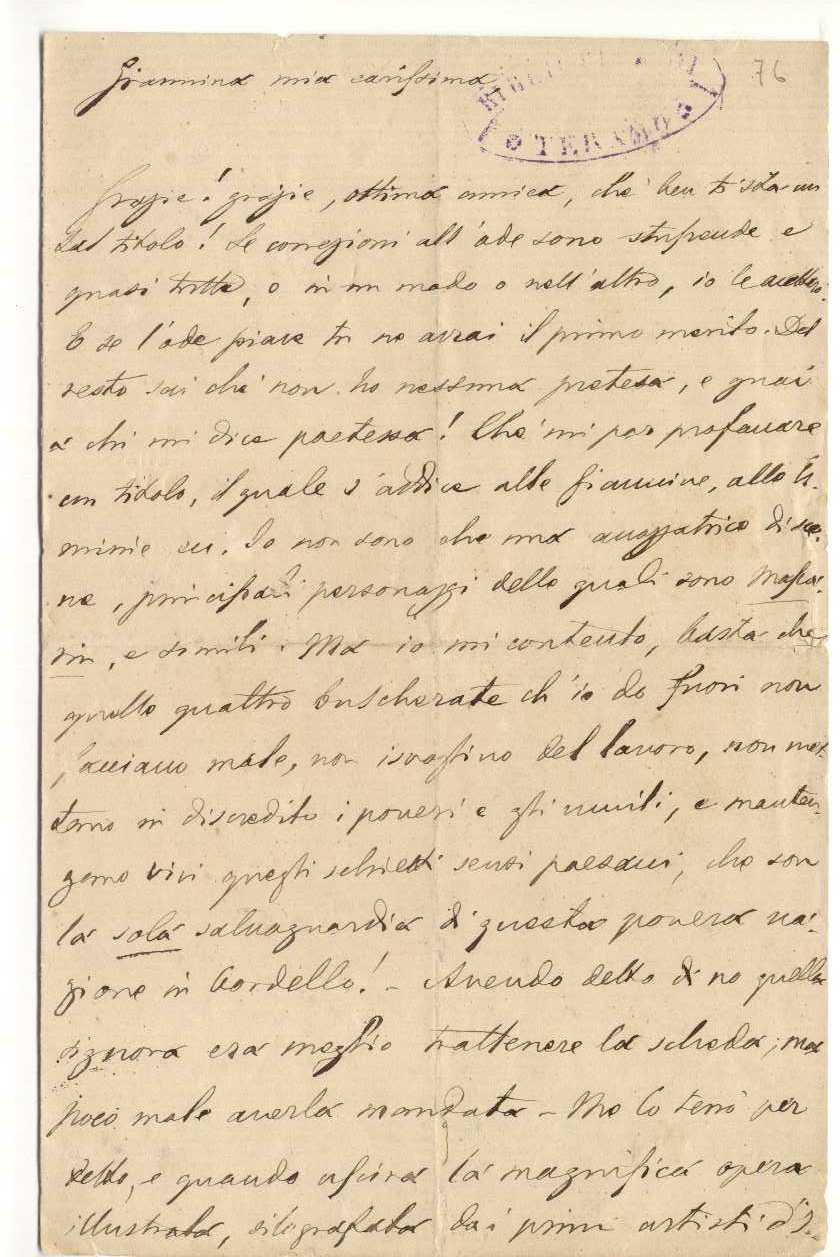 Giannina mia carissima
76
TERAMO
Grazie! grazie, ottima amica, chè ben ti sta un
tal titolo! Le correzioni all'ode sono stupende e
quasi tutte, o in un modo o nell'altro, io le accetterò.
E se l'ode piace tu ne avrai il primo merito. Del
resto sai che non ho nessuna pretesa, e guai
a chi mi dice poetessa! Chè mi par profanare
un titolo, il quale s'addice alle Giannine, alle Er-
minie ecc. Io non sono che una accozzatrice di sce-
ne, principali personaggi delle quali sono
e simili. Ma io mi contento, basta che
quelle quattro buscherate ch'io do fuori non
facciano male, non isvoglino del lavoro, non met-
tano in discredito i poveri e gli umili, e manten-
gano vivi quegli schietti sensi paesani, che son
la sola salvaguardia di questa povera na-
zione in bordello! - Avendo detto di no quella
signora era meglio trattenere la scheda; ma
poco male averla mandata - Me lo terrò per
detto, e quando uscirà la magnifica opera
illustrata, silografata dai primi artisti d'I-